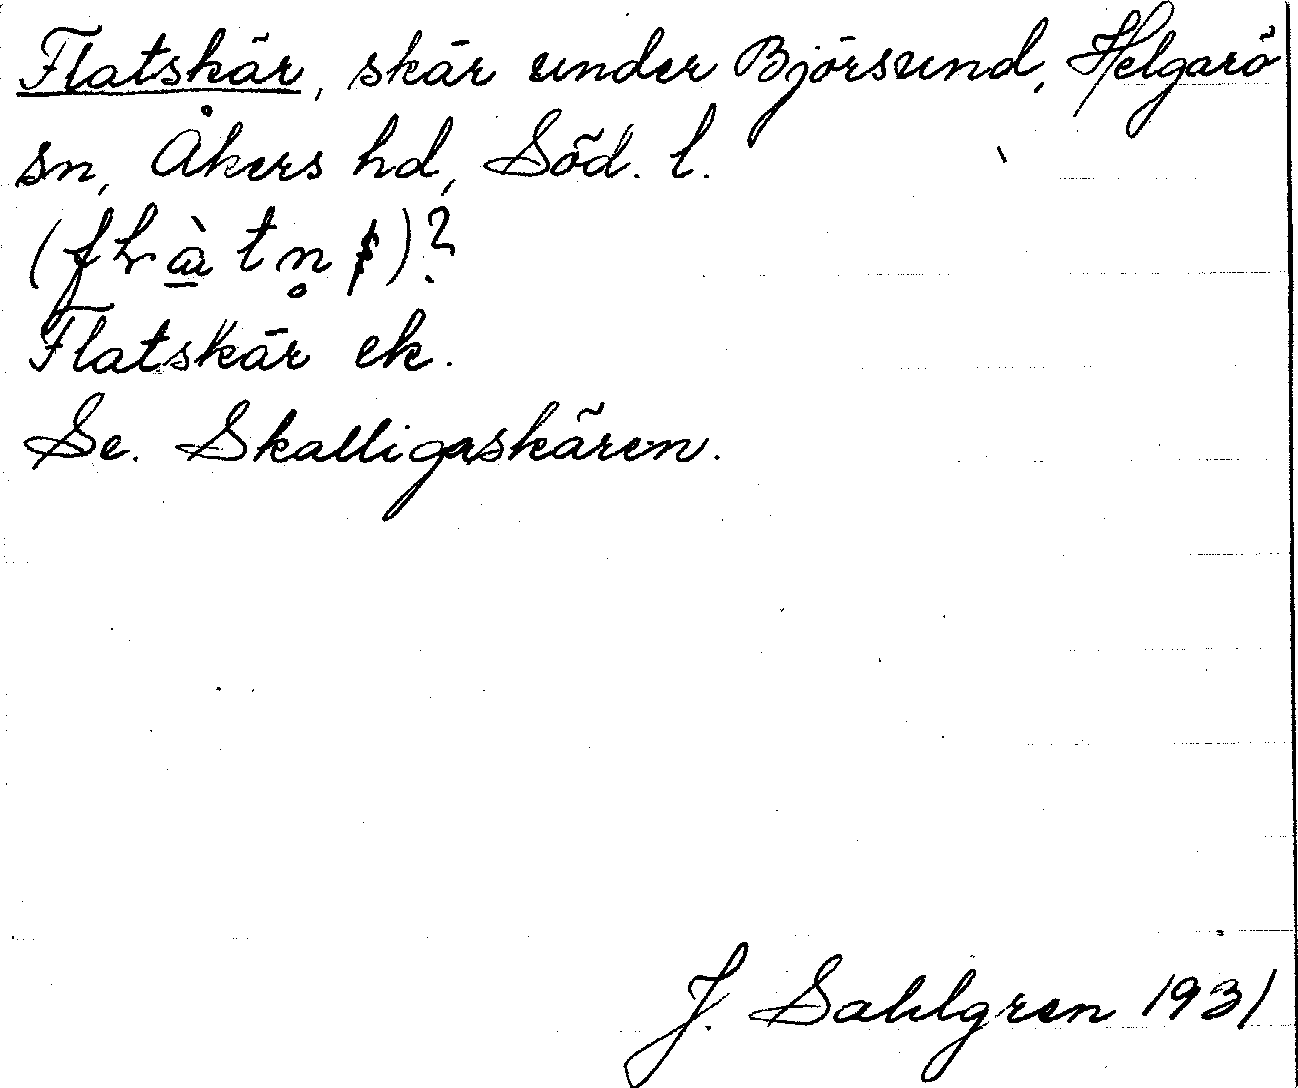 Flatskär, skär under Björsund, Helgarö
sn, Åkers hd, Söd. l.
Flatskär ek.
Se. Skalligaskären.
J. Sahlgren 1931